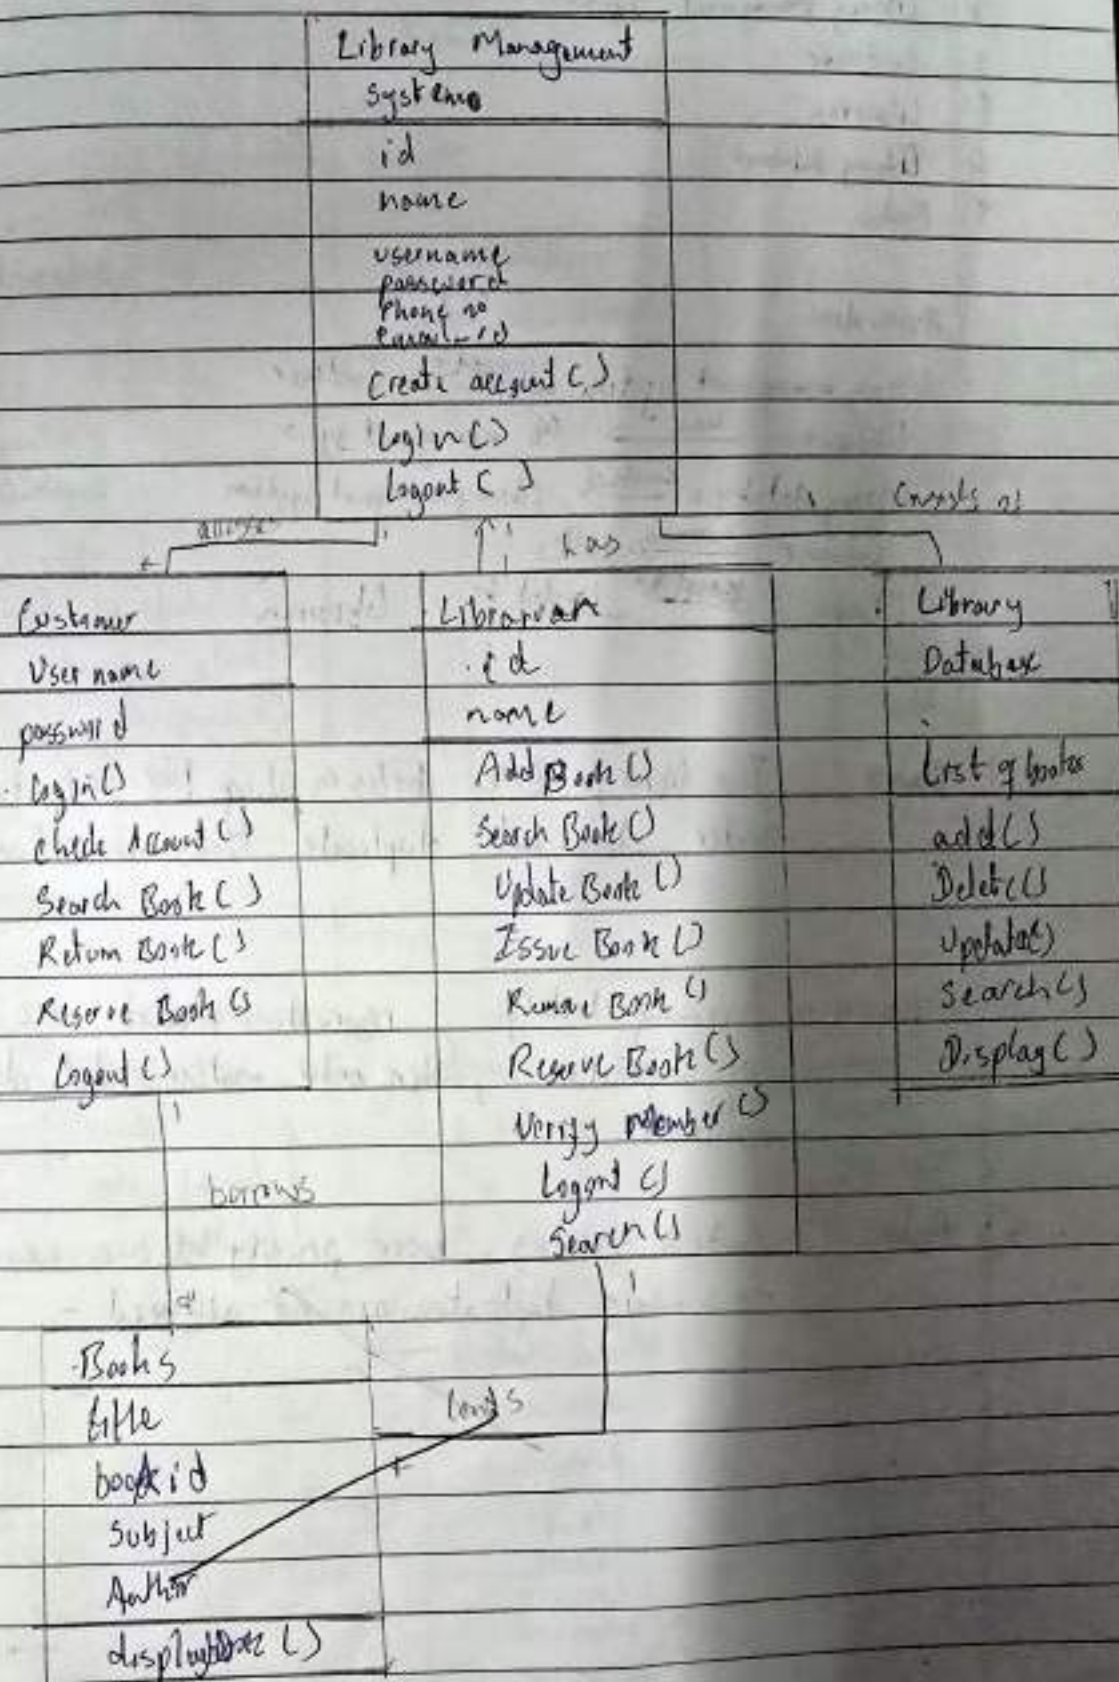 Library Management
System
id
name
username
password
Phone no
email-id
Create account ( )
Login ( )
Logout ( )
has
Customer
User name
password
Login ()
Check Account ( )
Search Book ( )
Return Book ( )
Reserve Book ()
Logout ( )
Librarian
id
name
Add Book ()
Search Book ()
Update Book ()
Issue Book ()
Remove Book ()
Reserve Book ()
Verify Member ()
Logout ()
Search ()
Library
Database
List of books
add ( )
Delete ()
Update ()
Search ()
Display ( )
borrows
Books
title
book id
Subject
Author